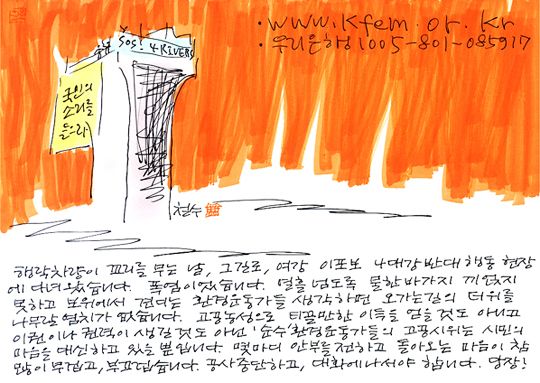 · www.kfem.or.kr
· 우리은행 1005-801-085917
SOS! 4 RIVERS
국민의
소리를
들으라
철수
행락차량이 꼬리를 무는 날, 그길로, 여강 이포보 4대강 반대 행동 현장
에 다녀 왔습니다. 폭염이었습니다. 열흘 넘도록 물 한 바가지 끼얹지
못하고 보 위에서 견디는 환경운동가들 생각하면 오가는 길의 더위를
나무랄 염치가 없습니다. 고공농성으로 티끌만한 이득을 얻을 것도 아니고
이권이나 권력이 생길 것도 아닌 '순수' 환경운동가들의 고공시위는 시민의
마음을 대신하고 있을 뿐입니다. 몇마디 안부를 전하고 돌아오는 마음이 참
많이 무겁고, 부끄럽습니다. 공사중단하고, 대화에 나서야 합니다. 당장!